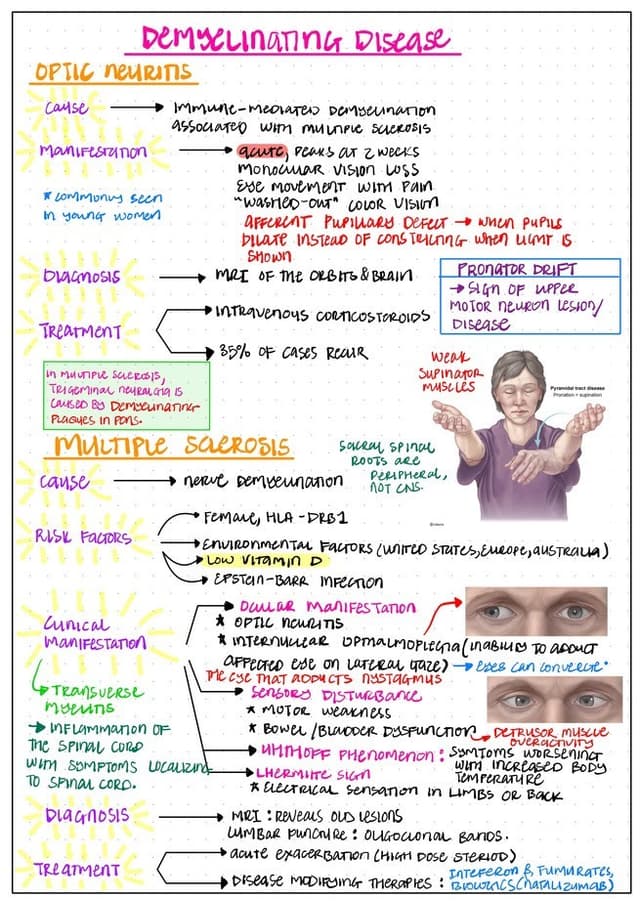 DEMYELINATING DISEASE
OPTIC NEURITIS
CAUSE → IMMUNE-MEDIATED DEMYELINATION
ASSOCIATED WITH MULTIPLE SCLEROSIS
MANIFESTATION → ACUTE, PEAKS AT 2 WEEKS
MONOCULAR VISION LOSS
EYE MOVEMENT WITH PAIN
"WASHED-OUT" COLOR VISION
* COMMONLY SEEN
IN YOUNG WOMEN
AFFERENT PUPILLARY DEFECT → WHEN PUPILS
DILATE INSTEAD OF CONSTRICTING WHEN LIGHT IS
SHOWN
DIAGNOSIS → MRI OF THE ORBITS & BRAIN
PRONATOR DRIFT
→ SIGN OF UPPER
MOTOR NEURON LESION/
DISEASE
TREATMENT
INTRAVENOUS CORTICOSTEROIDS
35% OF CASES RECUR
IN MULTIPLE SCLEROSIS,
TRIGEMINAL NEURALGIA IS
CAUSED BY DEMYELINATING
PLAQUES IN PONS.
WEAK
SUPINATOR
MUSCLES
Pyramidal tract disease
Pronation > supination
MULTIPLE SCLEROSIS
SACRAL SPINAL
ROOTS ARE
PERIPHERAL,
NOT CNS.
CAUSE → NERVE DEMYELINATION
RISK FACTORS
FEMALE, HLA-DRB1
ENVIRONMENTAL FACTORS (UNITED STATES, EUROPE, AUSTRALIA)
LOW VITAMIN D
EPSTEIN-BARR INFECTION
CLINICAL
MANIFESTATION
OCULAR MANIFESTATION
* OPTIC NEURITIS
* INTERNUCLEAR OPTHALMOPLEGIA (INABILITY TO ADDUCT
AFFECTED EYE ON LATERAL GAZE) → EYES CAN CONVERGE.
THE EYE THAT ADDUCTS NYSTAGMUS
→ TRANSVERSE
MYELITIS
→ INFLAMMATION OF
THE SPINAL CORD
WITH SYMPTOMS LOCALIZING
TO SPINAL CORD.
SENSORY DISTURBANCE
* MOTOR WEAKNESS
* BOWEL/BLADDER DYSFUNCTION → DETRUSOR MUSCLE
OVERACTIVITY
UHTHOFF PHENOMENON: SYMTOMS WORSENING
WITH INCREASED BODY
TEMPERATURE
LHERMITE SIGN
* ELECTRICAL SENSATION IN LIMBS OR BACK
DIAGNOSIS → MRI: REVEALS OLD LESIONS
LUMBAR PUNCTURE: OLIGOCLONAL BANDS.
TREATMENT
ACUTE EXACERBATION (HIGH DOSE STERIOD)
DISEASE MODIFYING THERAPIES: INTEFERON β, FUMURATES,
BIOLOGICS (NATALIZUMAB)